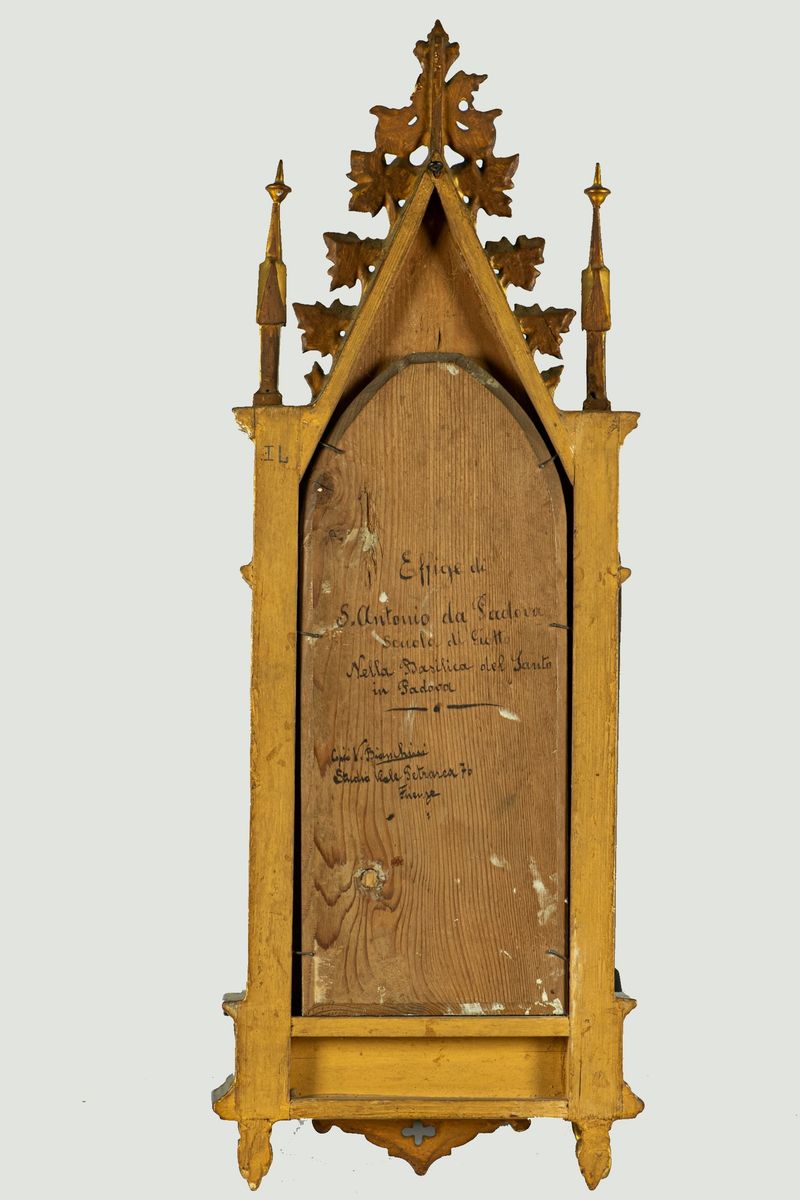 IL
Effige di
S. Antonio da Padova
Scuola di Giotto
Nella Basilica del Santo
in Padova
Copiò V. Bianchini
Studio Viale Petrarca 76
Firenze